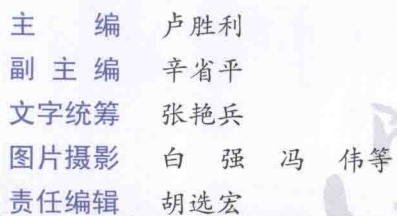 主　　编　卢胜利
副 主 编　辛省平
文字统筹　张艳兵
图片摄影　白　强　冯　伟等
责任编辑　胡选宏